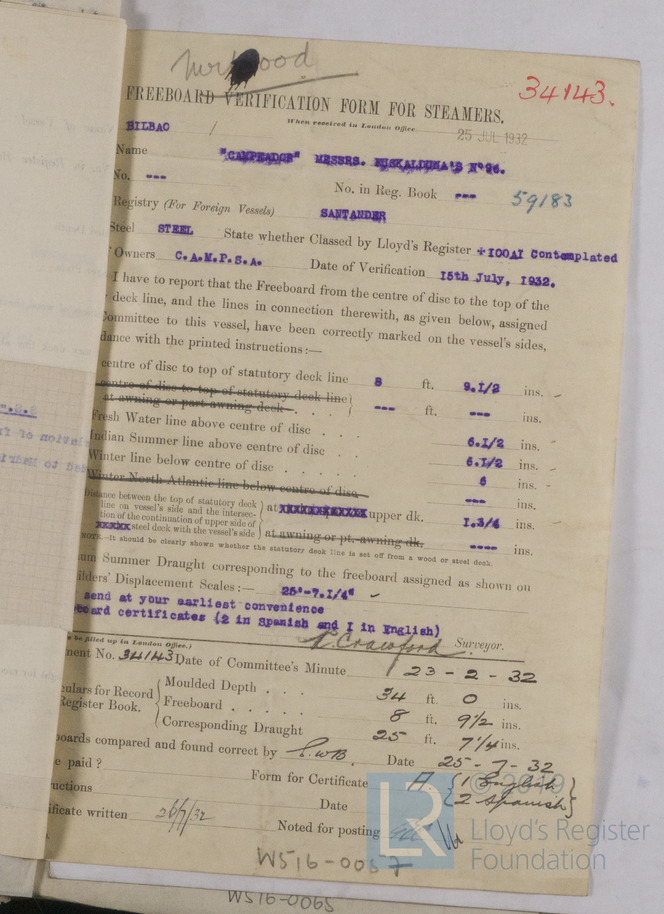 Norwood
34143.
FREEBOARD VERIFICATION FORM FOR STEAMERS.
When received in London Office
25 JUL 1932
BILBAO /
Name "CAMPEADOR" MESSRS. EUSKALDUNA'S Nº96.
No. --- No. in Reg. Book --- 59183
Registry (For Foreign Vessels) SANTANDER
Steel STEEL State whether Classed by Lloyd's Register +100AI Contemplated
Owners C.A.M.P.S.A. Date of Verification 15th July, 1932.
I have to report that the Freeboard from the centre of disc to the top of the
deck line, and the lines in connection therewith, as given below, assigned
Committee to this vessel, have been correctly marked on the vessel's sides,
dance with the printed instructions:—
centre of disc to top of statutory deck line 8 ft. 9.1/2 ins.
centre of disc to top of statutory deck line
at awning or part awning deck . . . --- ft. --- ins.
Fresh Water line above centre of disc . . . 6.1/2 ins.
Indian Summer line above centre of disc . . . 6.1/2 ins.
Winter line below centre of disc . . . . . 6 ins.
Winter North Atlantic line below centre of disc --- ins.
Distance between the top of statutory deck
line on vessel's side and the intersec-
tion of the continuation of upper side of
XXXXX steel deck with the vessel's side
at XXXXXXXXXXXXX upper dk. I.3/4 ins.
at awning or pt. awning dk. ---- ins.
NOTE.—It should be clearly shown whether the statutory deck line is set off from a wood or steel deck.
um Summer Draught corresponding to the freeboard assigned as shown on
ilders' Displacement Scales:— 25'-7.1/4"
send at your earliest convenience
board certificates (2 in Spanish and I in English)
Crawford Surveyor.
to be filled up in London Office.)
ment No. 34143 Date of Committee's Minute 23 - 2 - 32
culars for Record
Register Book.
Moulded Depth . . . 34 ft. 0 ins.
Freeboard . . . . . 8 ft. 9½ ins.
Corresponding Draught 25 ft. 7¼ ins.
boards compared and found correct by Date 25 - 7 - 32
e paid ? Form for Certificate A { 1 English
2 Spanish }
uctions Date
ificate written 26/7/32 Noted for posting
© 2019
LR Lloyd's Register
Foundation
WS16-0057
WS16-0065